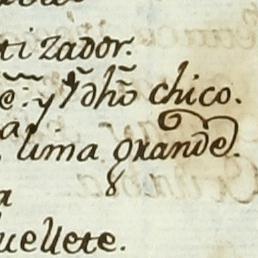 tizador.
e: y dho chico.
a
lima grande.
8
a
uellete.